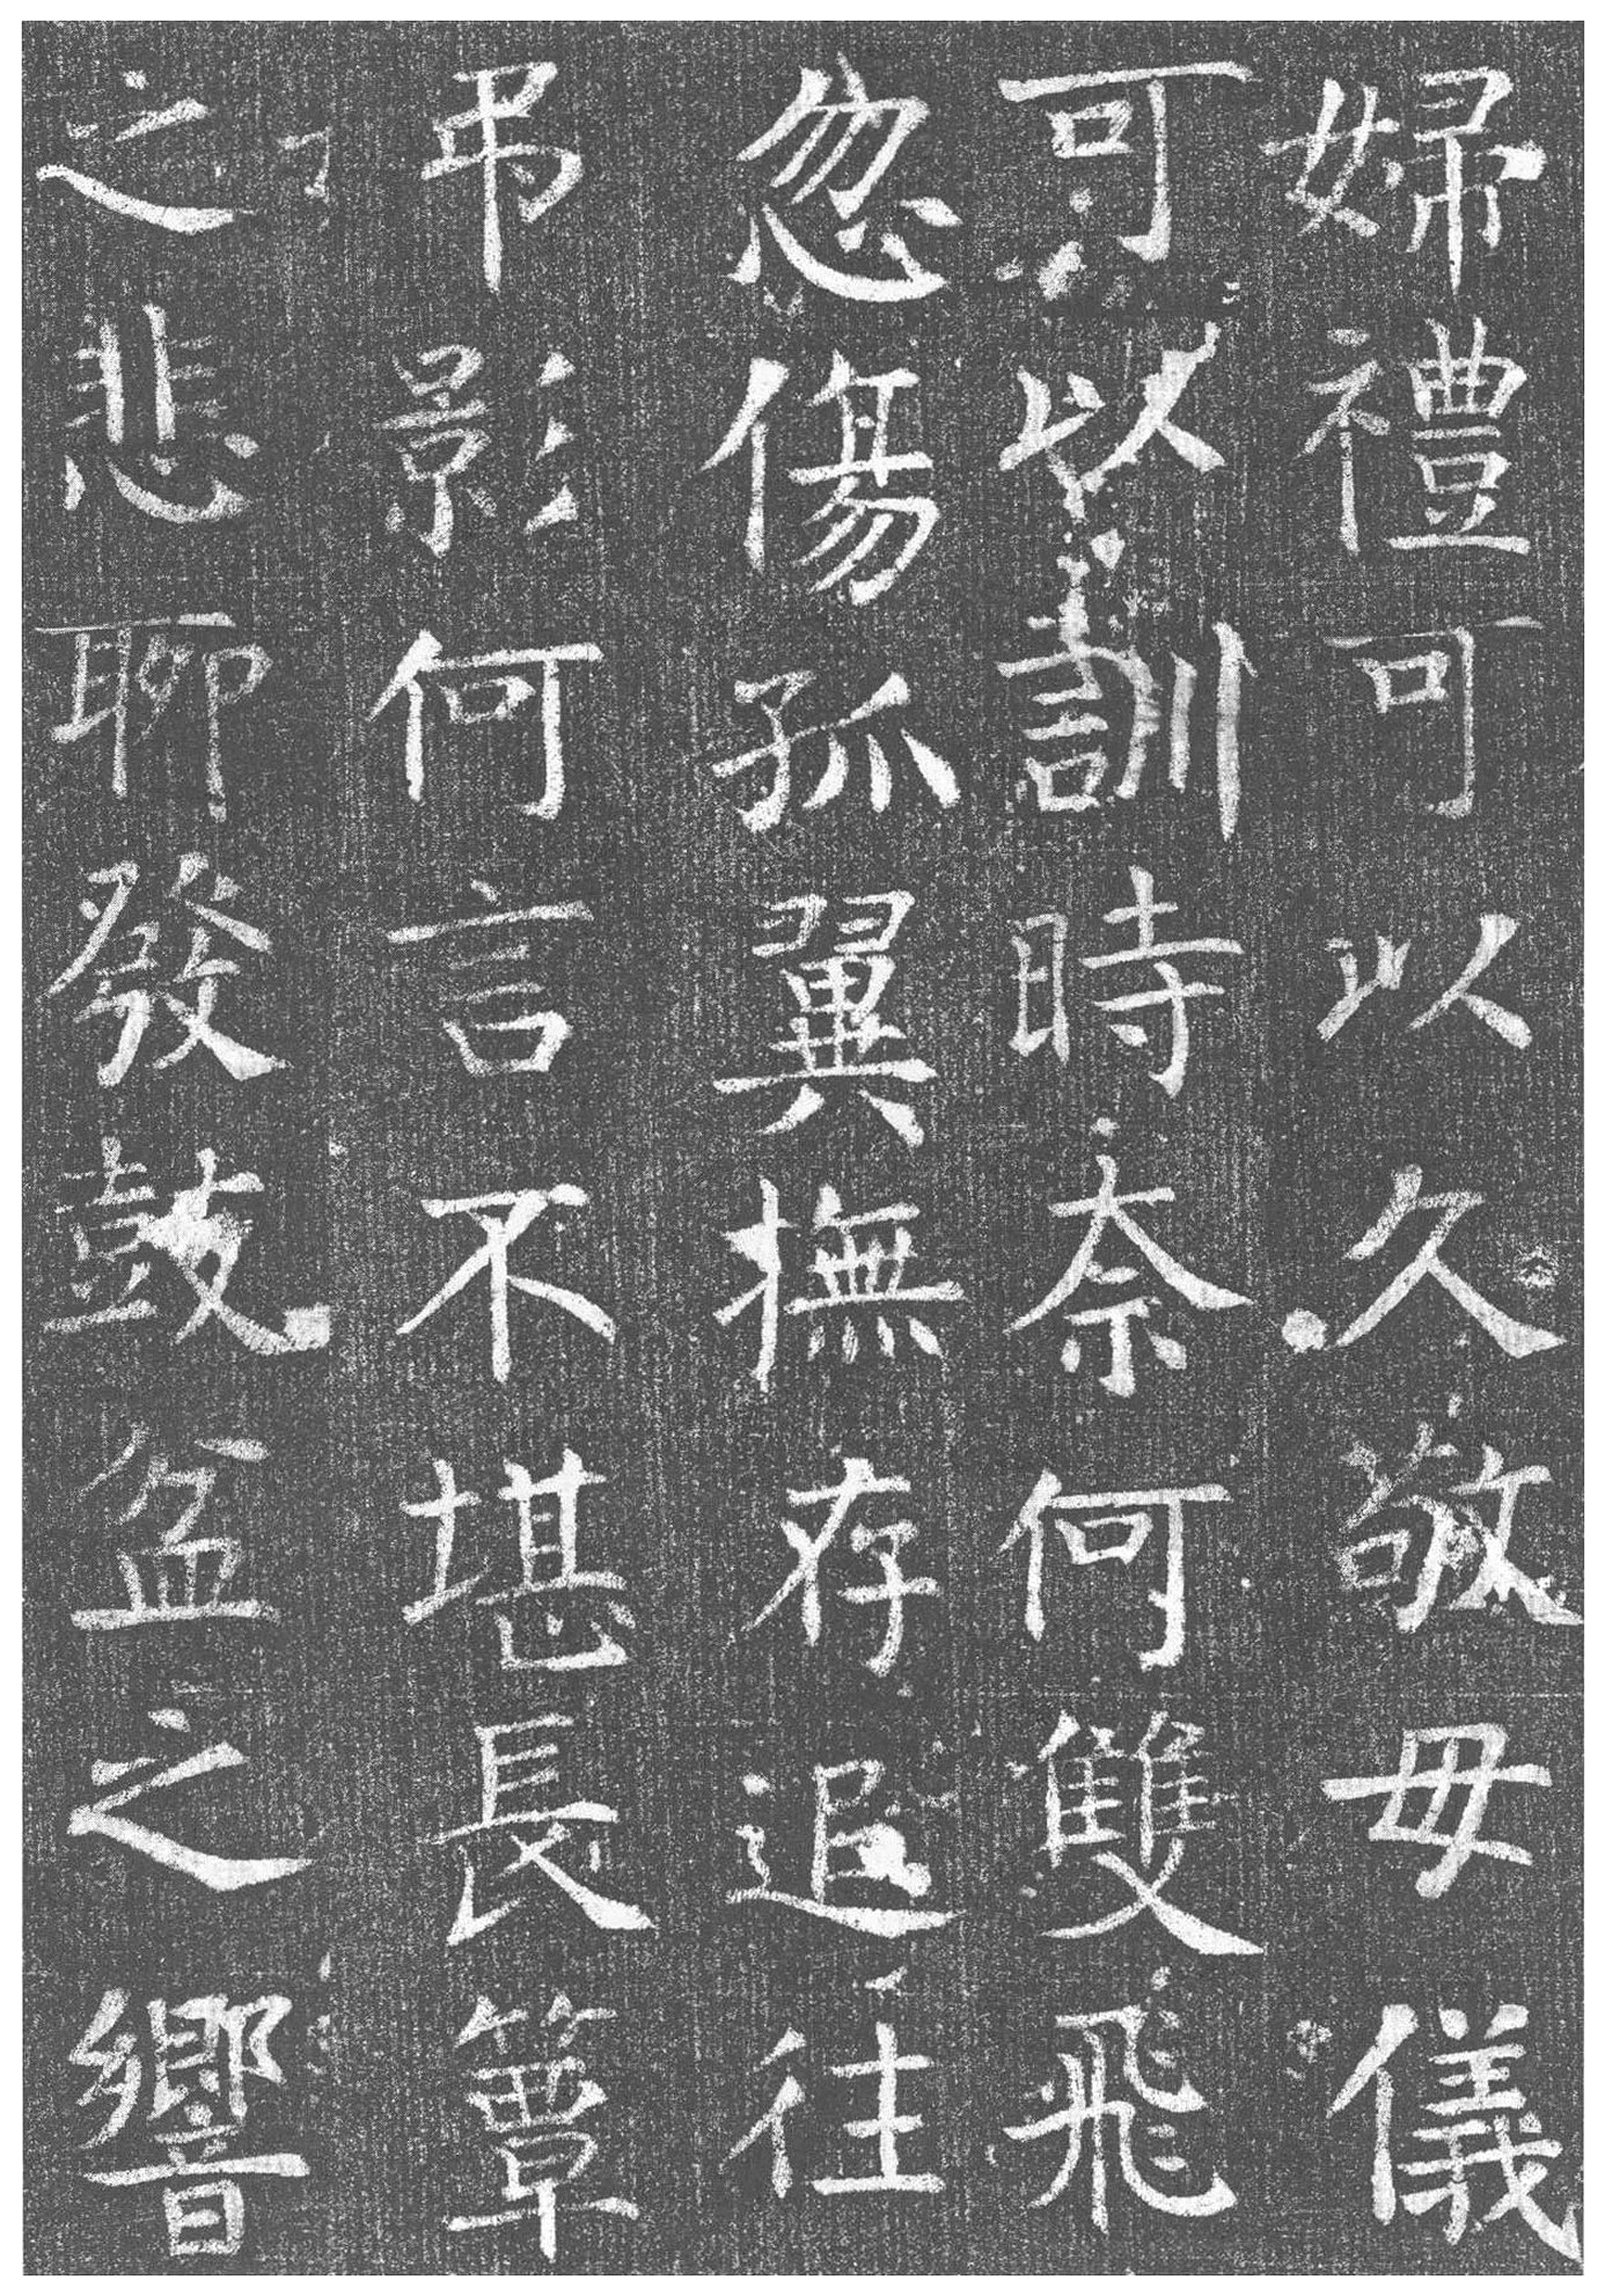 婦禮可以久敬毋儀
可以訓時奈何雙飛
忽傷孤翼撫存追往
弔影何言不堪長簟
之悲聊發鼓盆之響